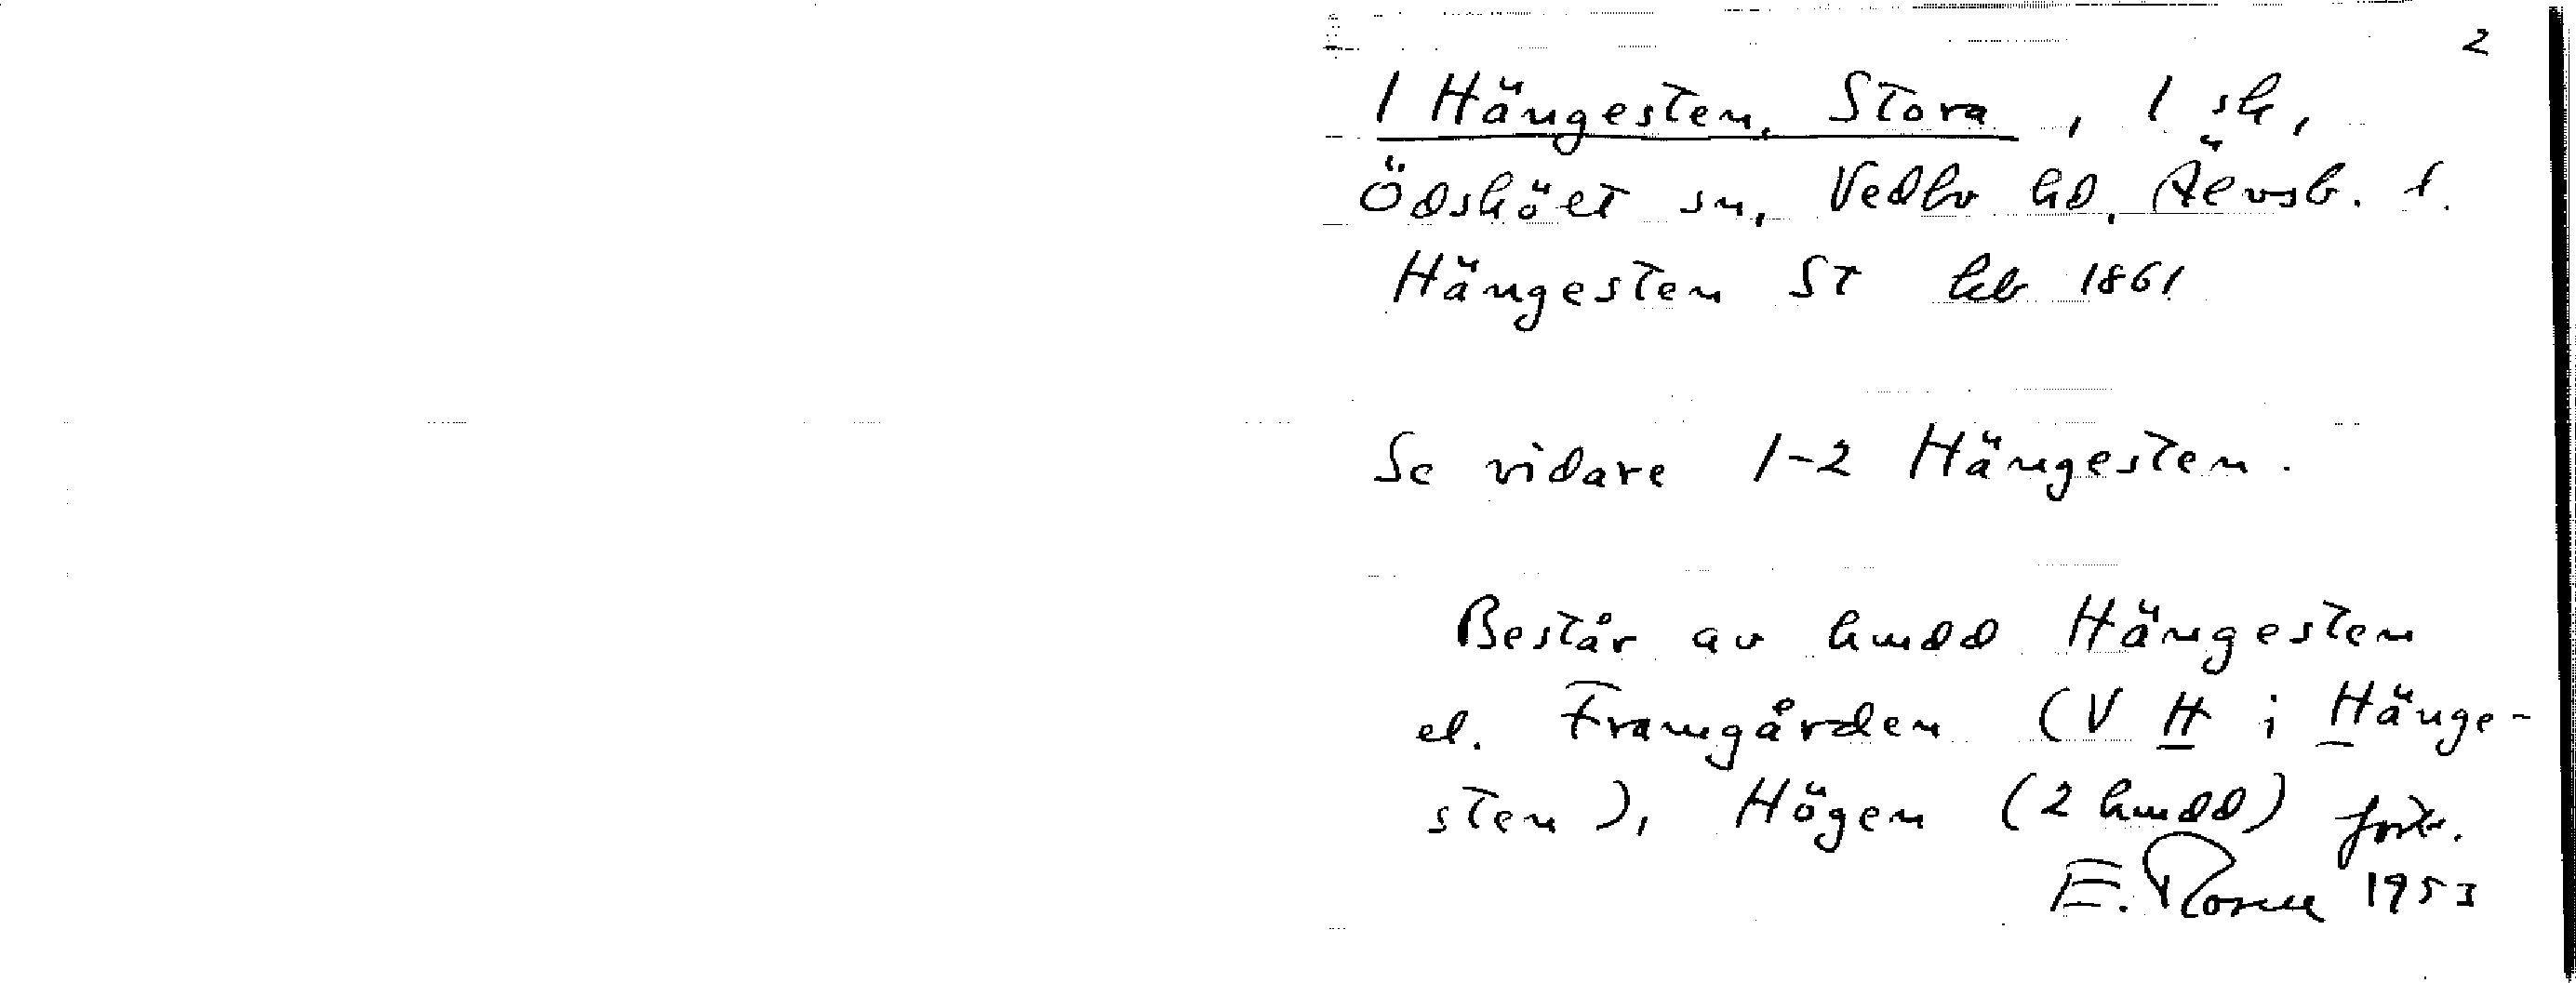 2
1 Hängesten, Stora, 1 sk,
Ödskölt sn, Vedbo hd, Älvsb. l.
Hängesten St kb 1861
Se vidare 1-2 Hängesten.
Består av hmdd Hängesten
el. Framgården (V H i Hänge-
sten), Högen (2 hmdd) forts.
E. Rosell 1953